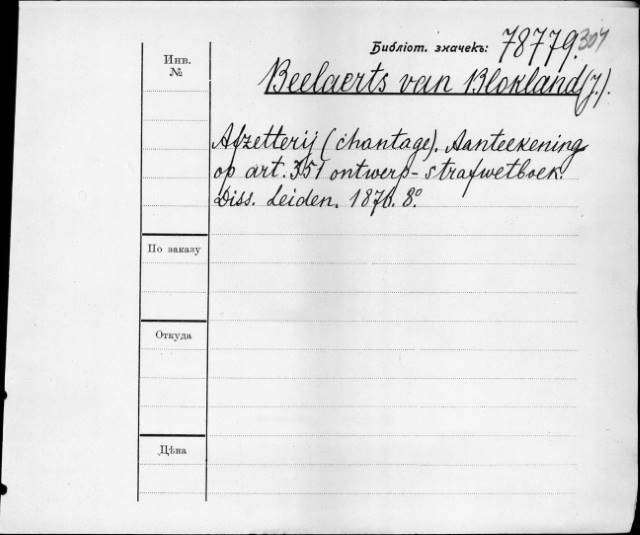 Библіот. значекъ: 78779. 307
Инв.
№
Beelaerts van Blokland (J.).
Afzetterij (chantage). Aanteekening
op art. 351 ontwerp-strafwetboek.
Diss. Leiden. 1876. 8°
По заказу
Откуда
Цѣна